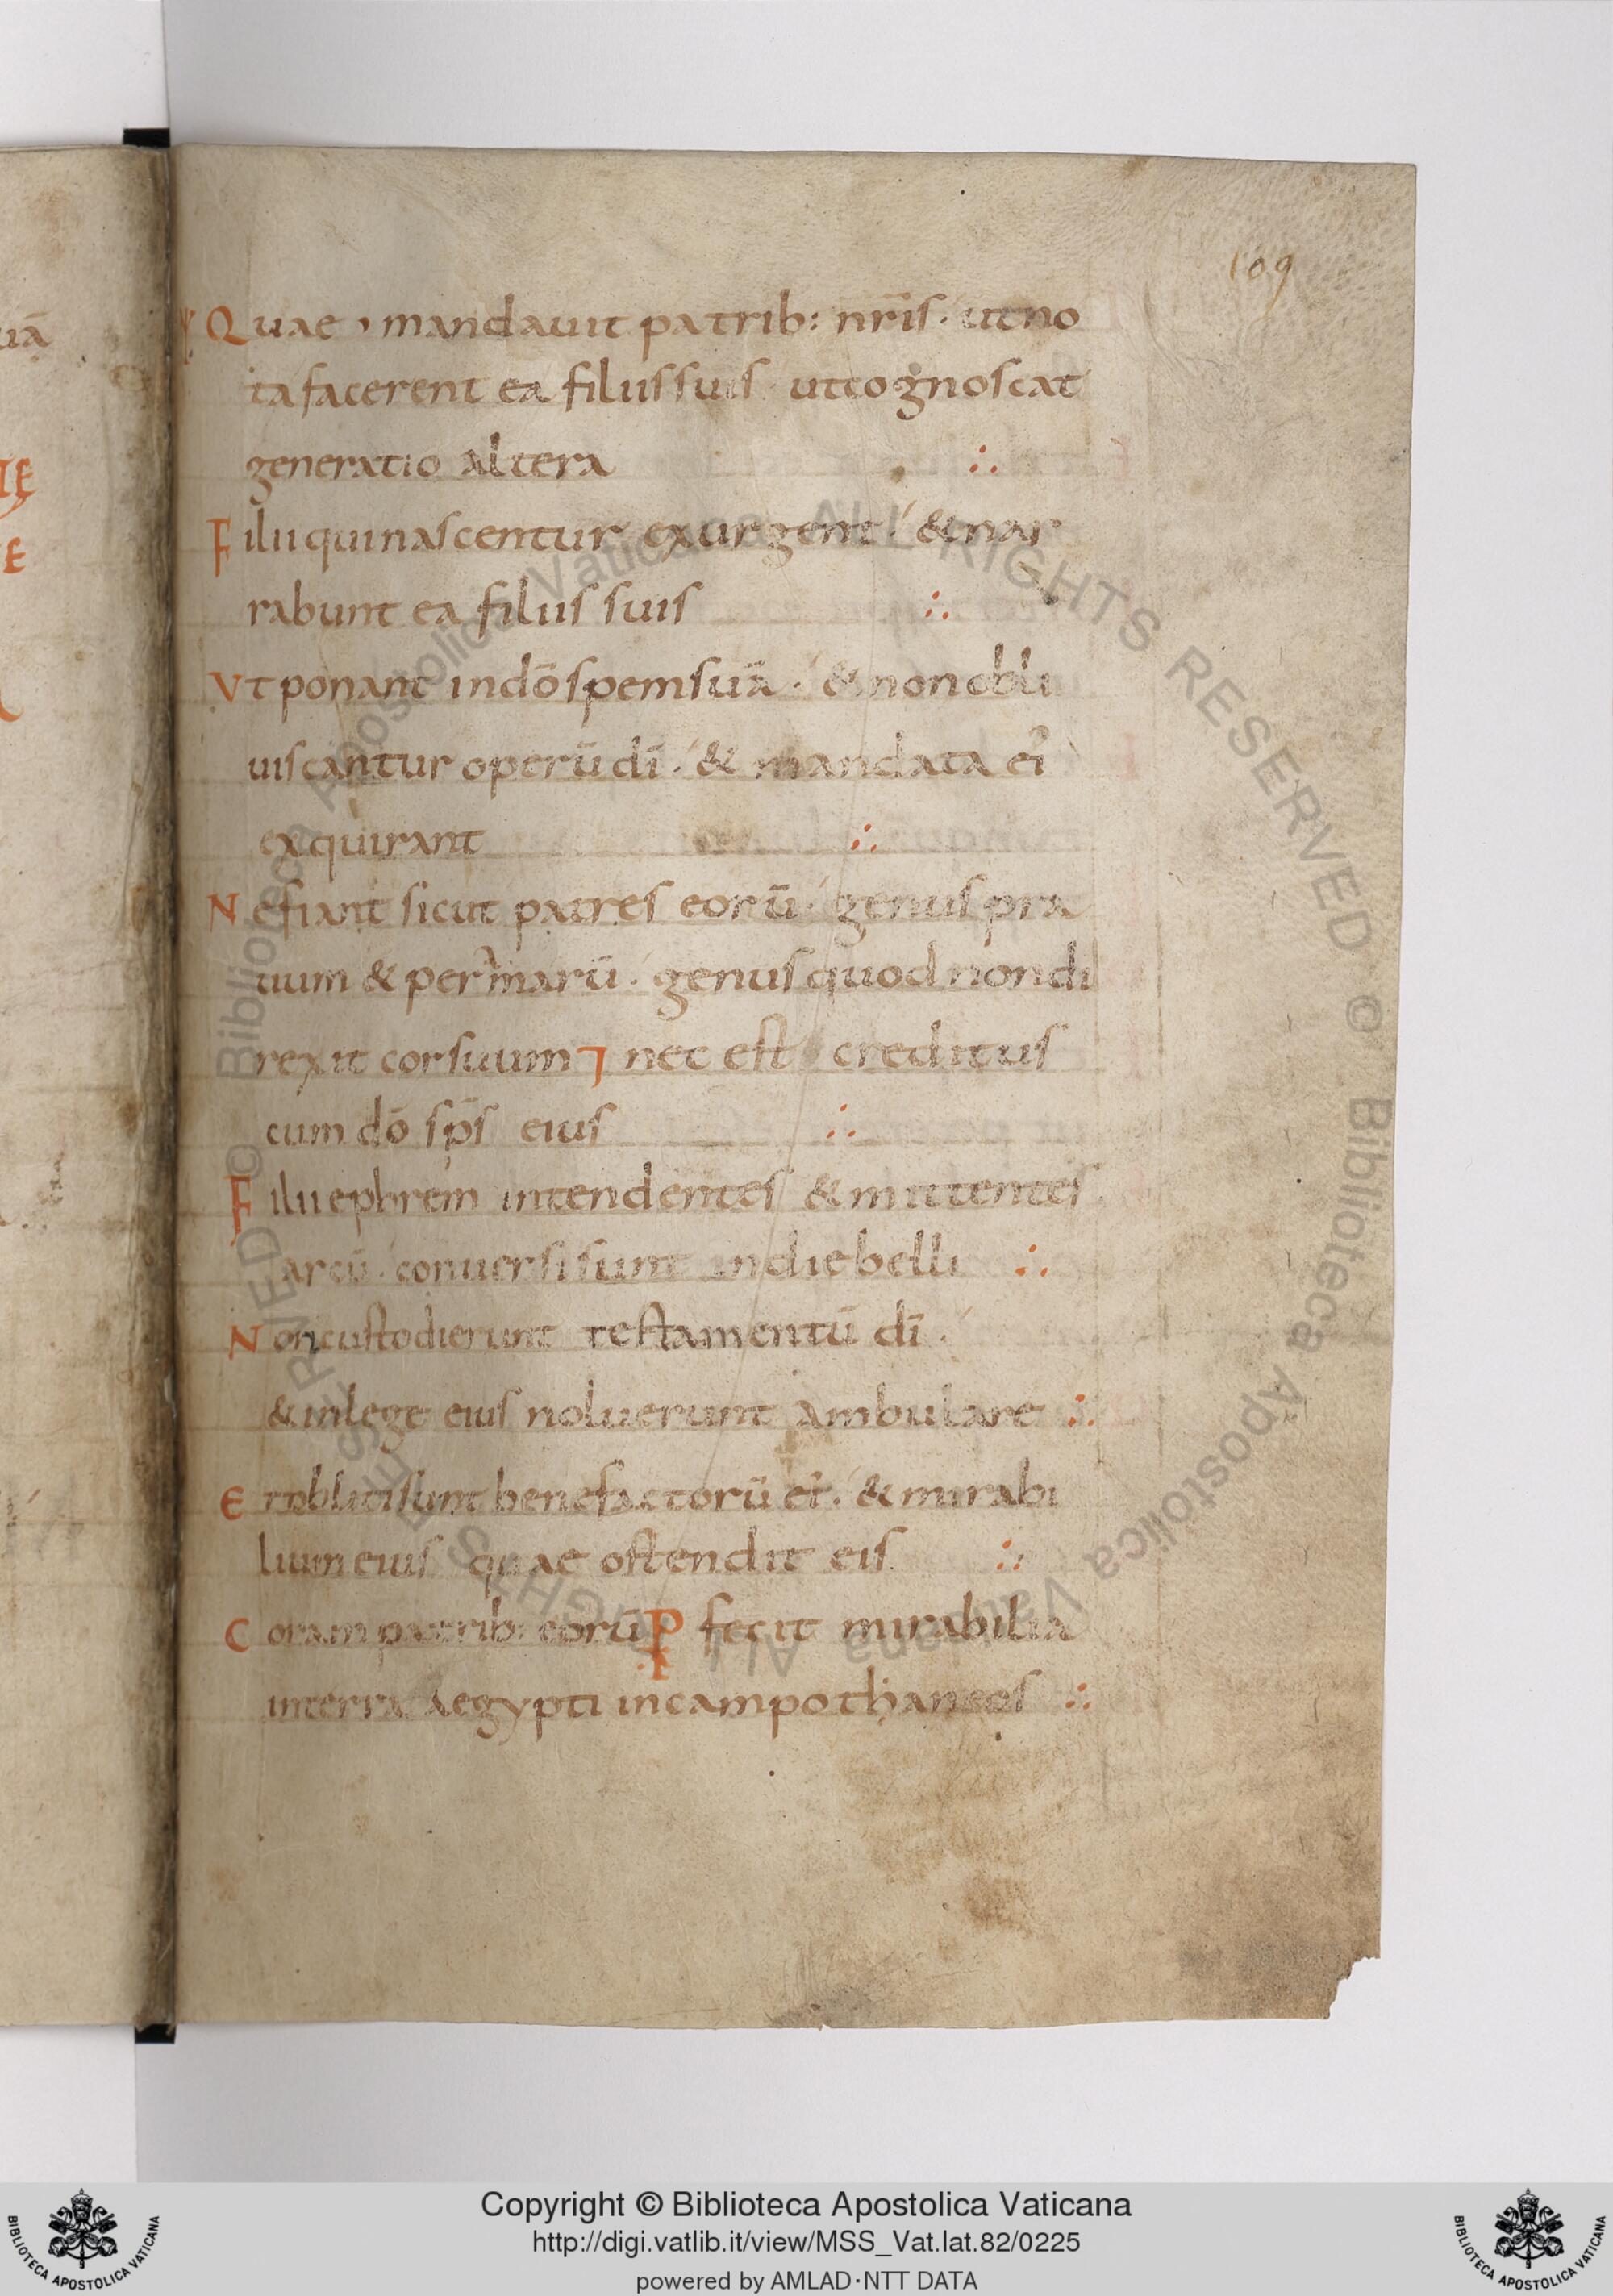 109
Quae mandauit patrib: nr̄is · ut no
ta facerent ea filiis suis · ut cognoscat
generatio altera ∴
Filii qui nascentur exurgent · & nar
rabunt ea filiis suis ∴
Vt ponant in dō spem suā · & non obli
uiscantur operū dī · & mandata ei'
exquirant ∴
Ne fiant sicut patres eorū · genus pra
uum & peramarū · genus quod non di
rexit cor suum ⁊ nec est creditus
cum dō sp̄s eius ∴
Filii ephrem intendentes & mittentes
arcū · conuersi sunt in die belli ∴
Non custodierunt testamentū dī ·
& in lege eius noluerunt ambulare ∴
Et obliti sunt benefactorū ei' · & mirabi
lium eius quae ostendit eis ∴
Coram patrib: eorū fecit mirabilia
in terra aegypti in campo thaneos ∴
uā
Copyright © Biblioteca Apostolica Vaticana
http://digi.vatlib.it/view/MSS_Vat.lat.82/0225
powered by AMLAD·NTT DATA
BIBLIOTECA APOSTOLICA VATICANA
BIBLIOTECA APOSTOLICA VATICANA